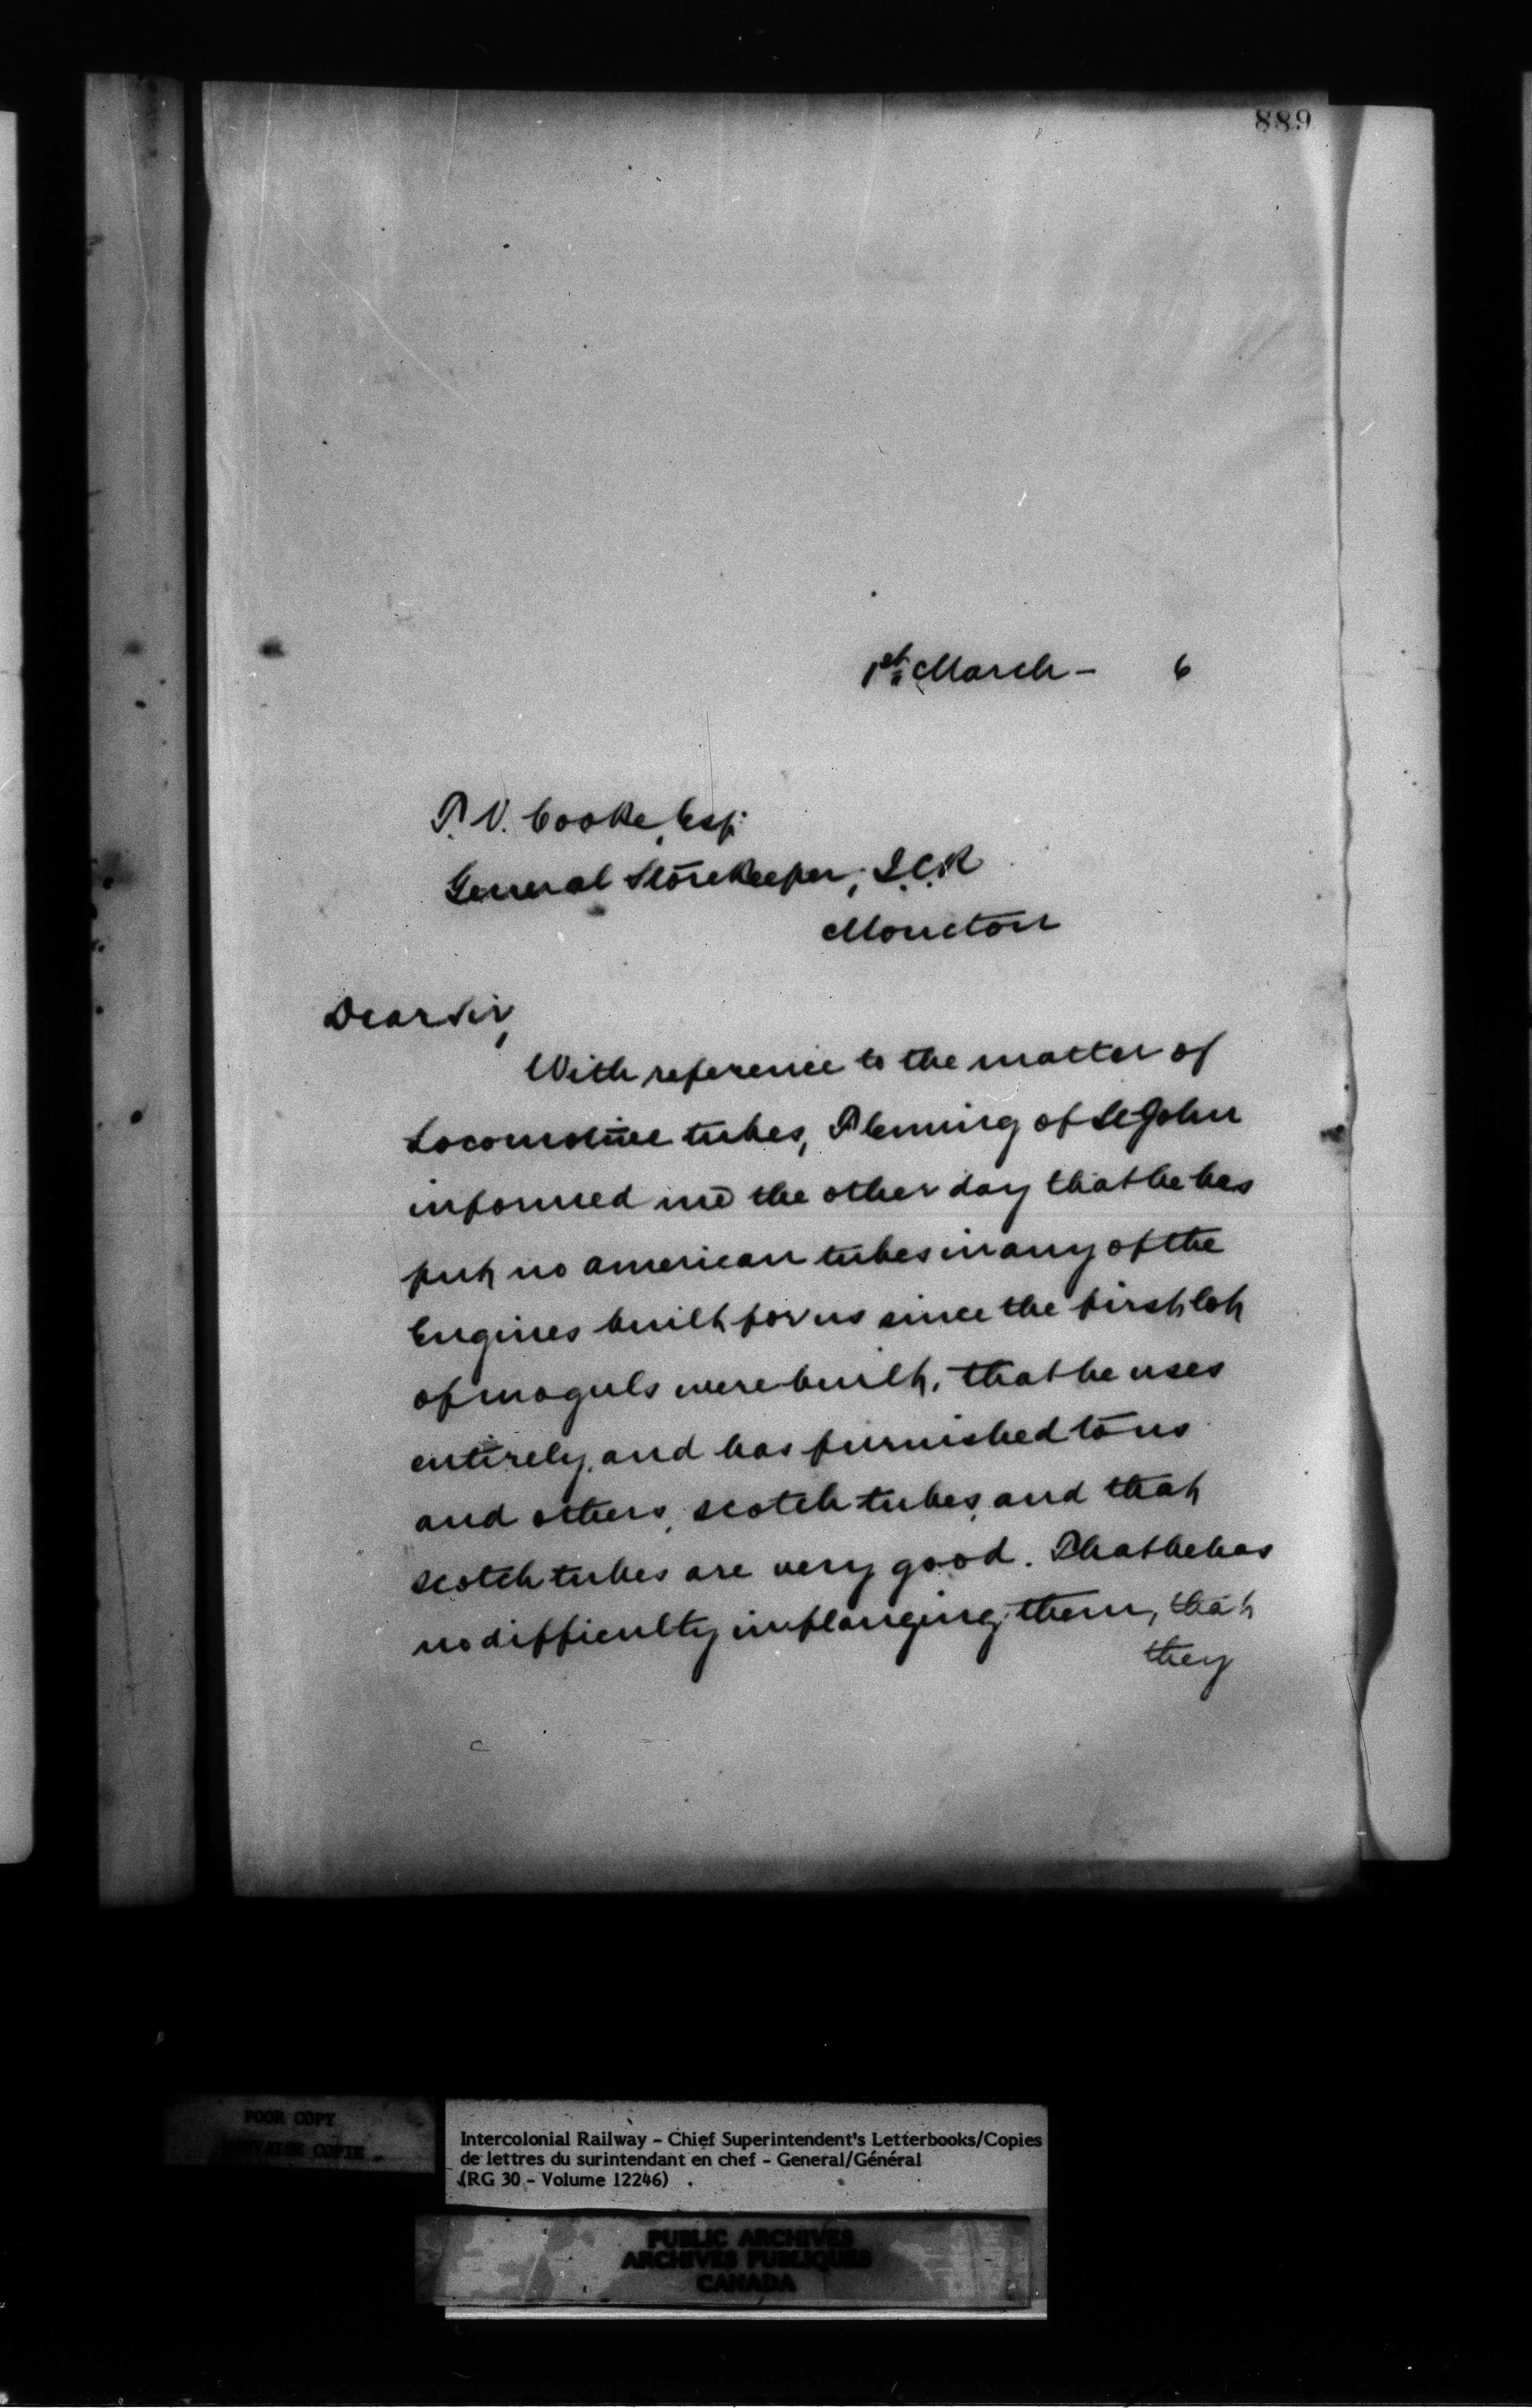 889
1st March - 6
P. V. Cooke, Esq:
General Storekeeper, I.C.R
Moncton
Dear Sir,
With reference to the matter of
Locomotive tubes, Fleming of St John
informed me the other day that he has
put no american tubes in any of the
Engines built for us since the first lot
of moguls were built, that he uses
entirely, and has furnished to us
and others, scotch tubes, and that
scotch tubes are very good. That he has
no difficulty in flanging them, that
they
POOR COPY
MAUVAISE COPIE
Intercolonial Railway - Chief Superintendent's Letterbooks/Copies
de lettres du surintendant en chef - General/Général
(RG 30 - Volume 12246)
PUBLIC ARCHIVES
ARCHIVES PUBLIQUES
CANADA